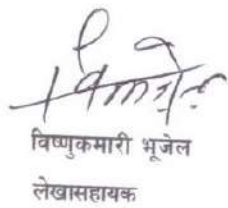 विष्णुकुमारी भूजेल
लेखासहायक